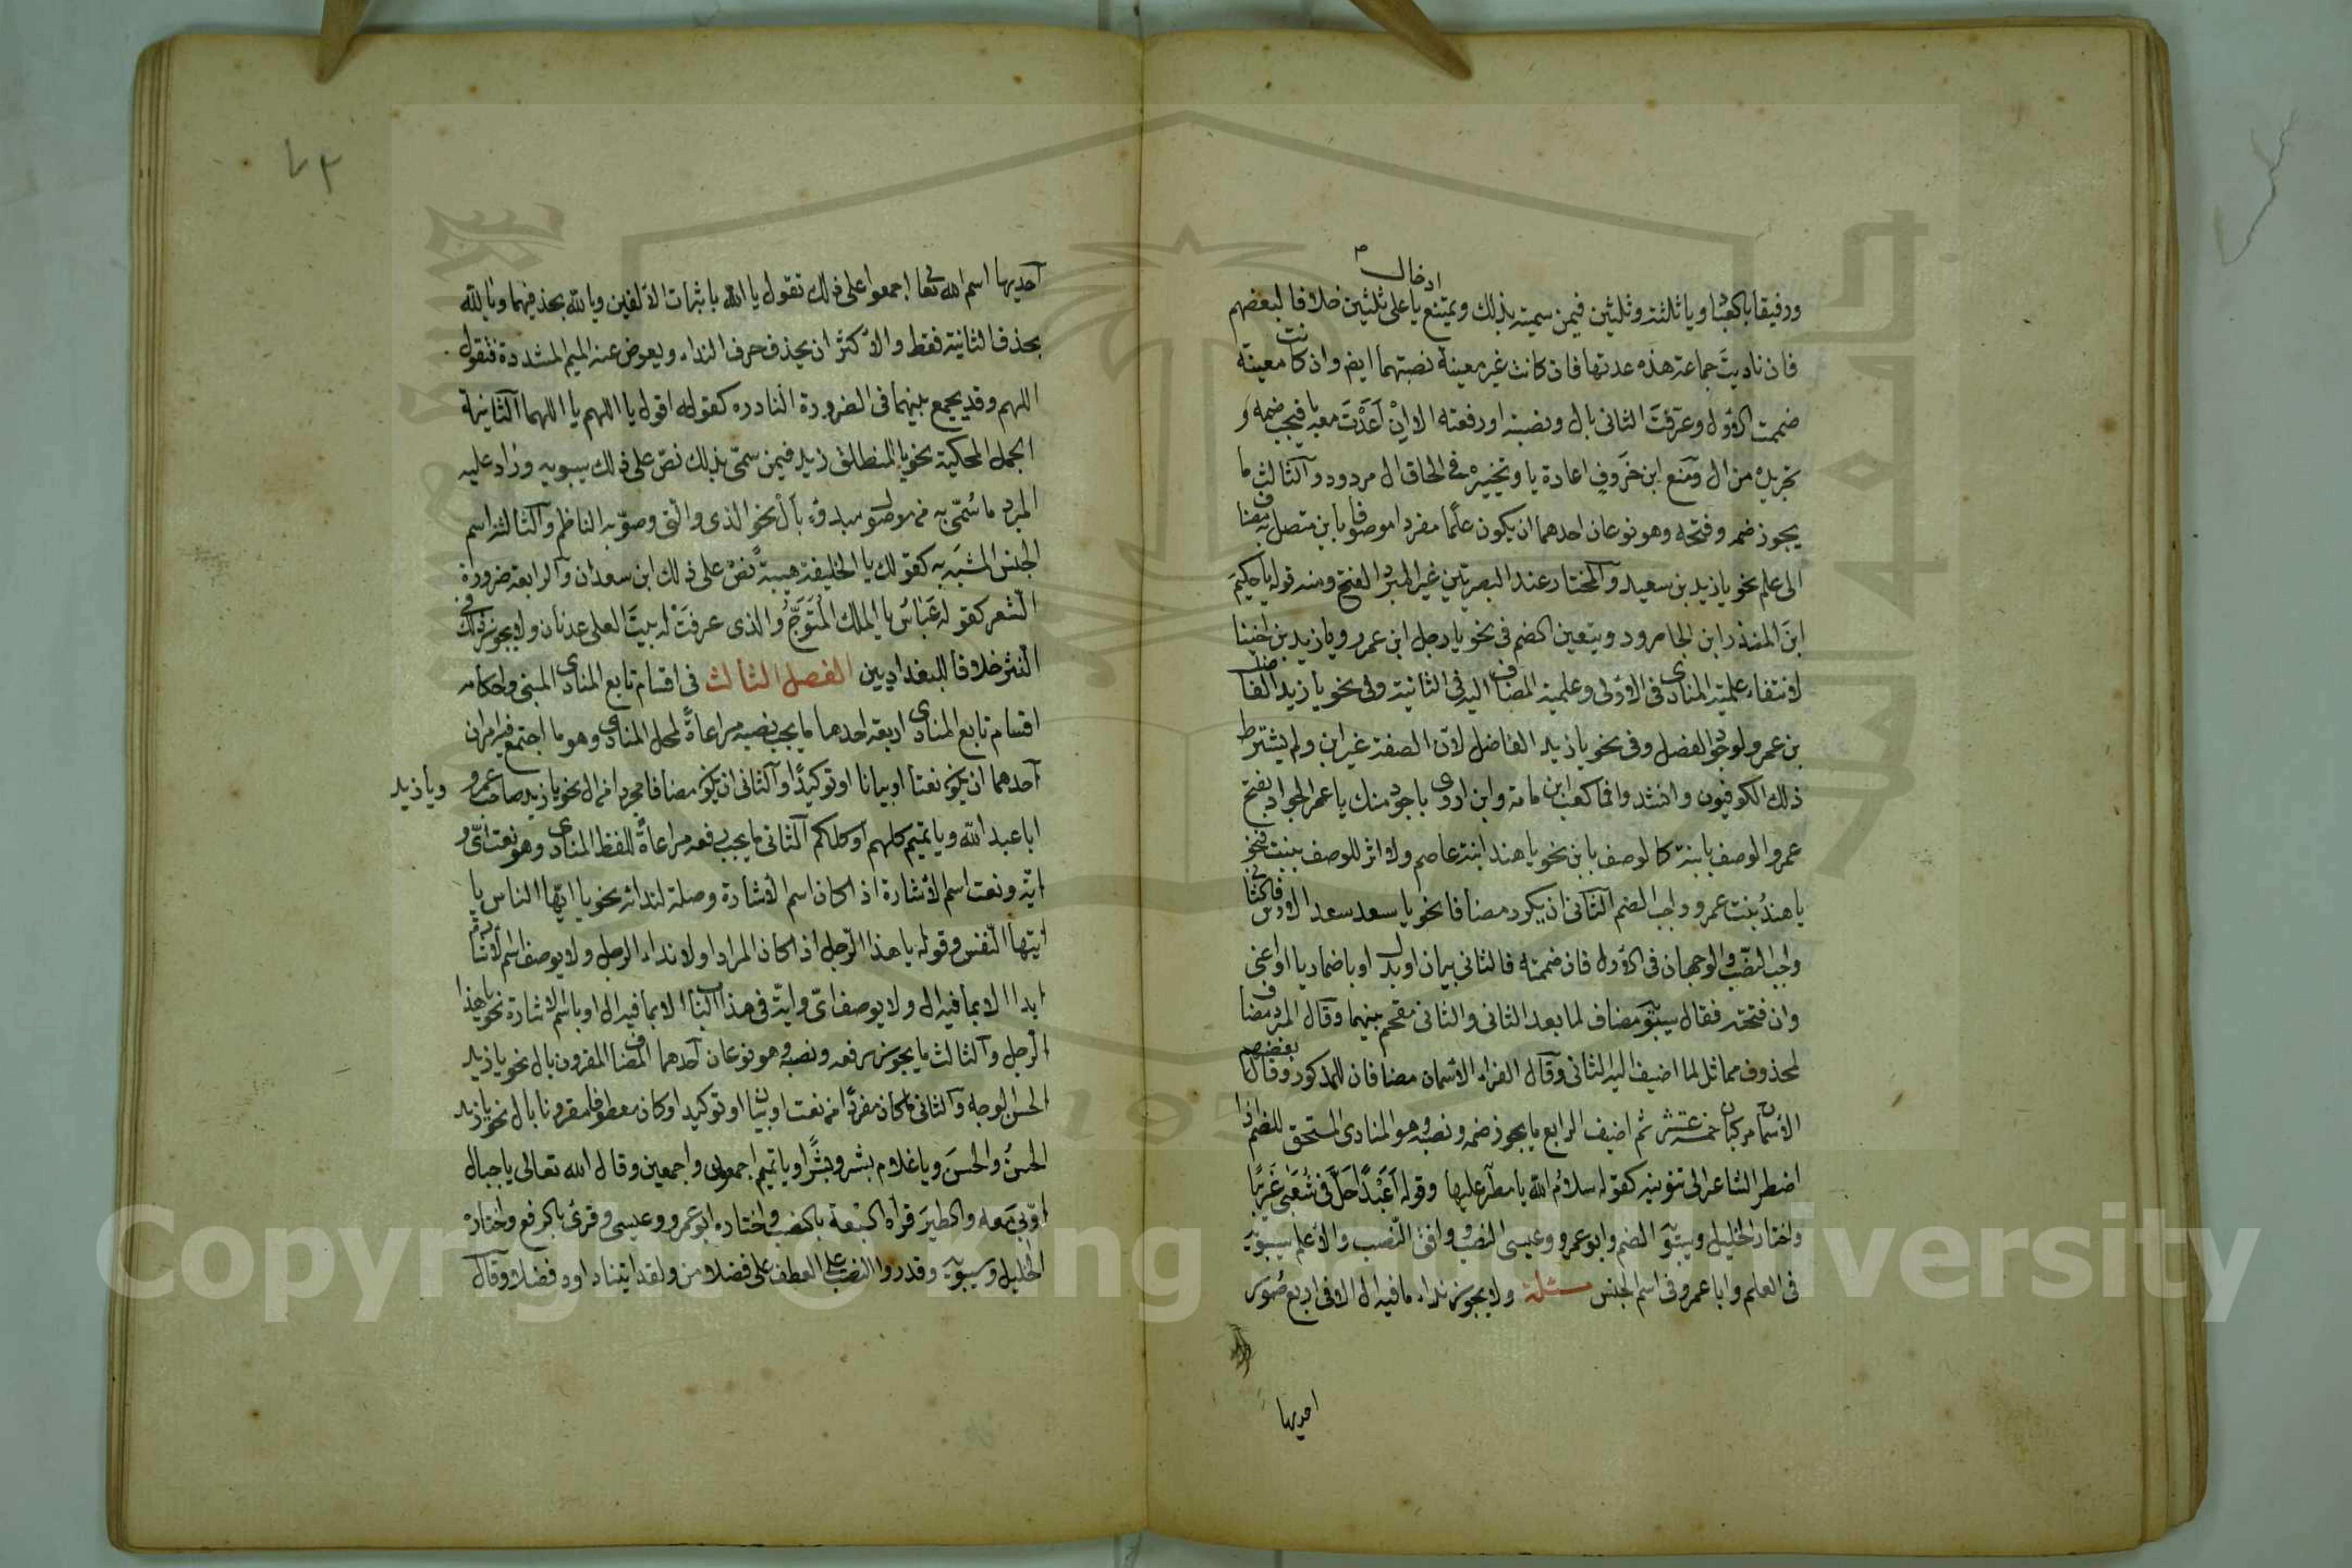 ادخال
ورفيقا بالعباد ويا ثلثة وثلثين فيمن سميته بذلك ويمتنع يا على ثلثين خلافا لبعضهم
فان ناديت جماعة هذه عدتها فان كانت غير معينة نصبتهما ايضا وان كانت معينة
ضممت الاول وعرّفت الثاني بال ونصبته او رفعته الا ان اعدت معه يا فيجب ضمه و
تجريده من ال ومنع ابن خروف اعادة يا وتخييره في الحاق ال مردود والثالث ما
يجوز ضمه وفتحه وهو نوعان احدهما ان يكون علما مفردا موصوفا بابن متصل به مضاف
الى علم نحو يا زيد بن سعيد والمختار عند البصريين غير المبرد الفتح ومنه قوله يا حكم
ابن المنذر ابن الجارود ويتعين الضم في نحو يا رجل ابن عمرو ويا زيد بن اخينا
لانتفاء علمية المنادى في الاولى وعلمية المضاف اليه في الثانية وفي نحو يا زيد الفاضل
بن عمرو لوجود الفصل وفي نحو يا زيد الفاضل لان الصفة غير ابن ولم يشترط
ذلك الكوفيون وانشدوا فما كعب ابن مامة وابن اروى باجود منك يا عمر الجوادا بفتح
عمر والوصف بابنة كالوصف بابن نحو يا هند ابنة عاصم ولا اثر للوصف ببنت فنحو
يا هند بنت عمرو واجب الضم الثاني ان يكرر مضافا نحو يا سعد سعد الاوس فالثاني
واجب النصب والوجهان في الاول فان ضممته فالثاني بيان او بدل او باضمار يا او اعني
وان فتحته فقال سيبويه مضاف لما بعد الثاني والثاني مقحم بينهما وقال المبرد مضاف
لمحذوف مماثل لما اضيف اليه الثاني وقال الفراء الاسمان مضافان للمذكور وقال بعضهم
الاسمان مركبان خمسة عشر ثم اضيف الرابع ما يجوز ضمه ونصبه وهو المنادى المستحق للضم اذا
اضطر الشاعر الى تنوينه كقوله سلام الله يا مطر عليها وقوله اعبدا حل في شعبى غريبا
واختار الخليل وسيبويه الضم وابو عمرو وعيسى النصب ووافق النصب والاعلم سيبويه
في العلم وابا عمرو في اسم الجنس مسئلة ولا يجوز نداء ما فيه ال الا في اربع صور
احديها
٤٣
احديها اسم الله تعا اجمعوا على ذلك تقول يا الله باثبات الالفين ويالله بحذفهما ويا لله
بحذف الثانية فقط والاكثر ان يحذف حرف النداء ويعوض عنه الميم المشددة فتقول
اللهم وقد يجمع بينهما في الضرورة النادرة كقوله اقول يا اللهم يا اللهما الثانية
الجمل المحكية نحو يا المنطلق زيد فيمن سمى بذلك نص على ذلك سيبويه وزاد عليه
المبرد ما سمى به من موصول مبدوء بال نحو الذي والتي وصوبه الناظم والثالثة اسم
الجنس المشبه به كقولك يا الخليفة هيبة نص على ذلك ابن سعدان والرابعة ضرورة
الشعر كقوله عباس يا الملك المتوج والذي عرفت له بيت العلى عدنان ولا يجوز ذلك في
النثر خلافا للبغداديين الفصل الثالث في اقسام تابع المنادى المبني واحكامه
اقسام تابع المنادى اربعة احدها ما يجب نصبه مراعاة لمحل المنادى وهو ما اجتمع فيه امران
احدهما ان يكون نعتا او بيانا او توكيدا والثاني ان يكون مضافا مجردا من ال نحو يا زيد صاحب عمرو ويا زيد
ابا عبد الله ويا تميم كلهم او كلكم الثاني ما يجب رفعه مراعاة للفظ المنادى وهو نعت اي و
اية ونعت اسم الاشارة اذا كان اسم الاشارة وصلة لندائه نحو يا ايها الناس يا
ايتها النفس وقوله يا هذا الرجل اذا كان المراد اولا نداء الرجل ولا يوصف اسم الاشارة
ابدا الا بما فيه ال ولا يوصف اي واية في هذا الباب الا بما فيه ال او باسم الاشارة نحو يا هذا
الرجل والثالث ما يجوز رفعه ونصبه وهو نوعان احدهما المضاف المقرون بال نحو يا زيد
الحسن الوجه والثاني ما كان مفردا من نعت او بيان او توكيد او كان معطوفا مقرونا بال نحو يا زيد
الحسن والحسن ويا غلام بشر وبشرا ويا تميم اجمعون واجمعين وقال الله تعالى يا جبال
اوبي معه والطير قراه السبعة بالنصب واختاره ابو عمرو وعيسى وقرئ بالرفع واختاره
الخليل وسيبويه وقدروا النصب على العطف على فضلا من ولقد اتينا داود فضلا وقال
Copyright © King Saud University